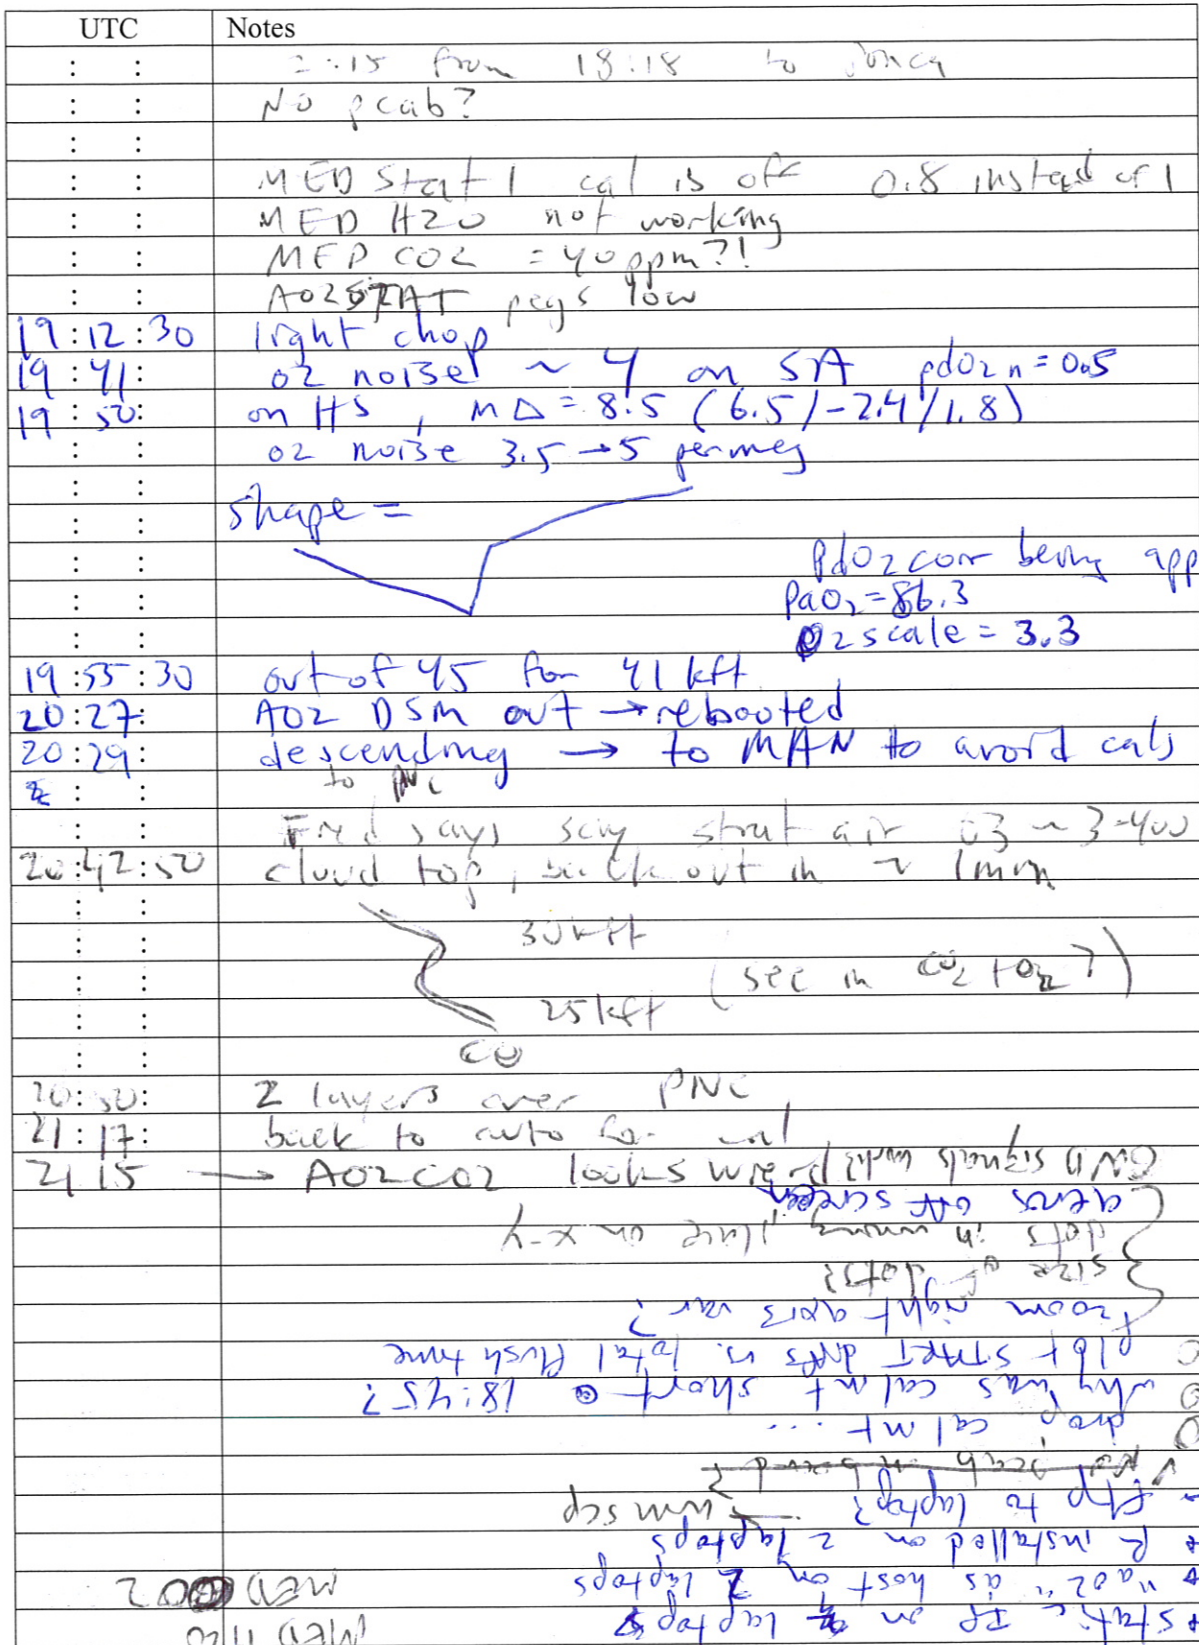 UTC Notes
2:15 from 18:18 to
No pcab?
MED Start 1 cal is off 0.8 instead of 1
MED H2O not working
MED CO2 = 40 ppm?!
AO2STAT pegs low
19:12:30 light chop
19:41: o2 noise ~ 4 on SA pdo2n = 0.5
19:50: on HS, mΔ = 8.5 (6.5/-2.4/1.8)
o2 noise 3.5 → 5 permeg
shape =
Pdo2corr being app
Pao2 = 86.3
o2scale = 3.3
19:55:30 out of 45 for 41 kft
20:27: AO2 DSM out → rebooted
20:29: descending → to MAN to avoid cals
to PNC
Fred says say strat air O3 ~ 3-400
20:42:50 cloud top, back out in ~ 1min
30kft
(see in CO2 + O2?)
25kft
CO
20:50: 2 layers over PNC
21:17: back to auto for cal
21 15 → AO2CO2 looks
GND signals work?
axens off screen
dots in wrong place on x-y
size of dots?
zoom right axis var?
plot START diffs vs. total flush time
why was calmt short @ 18:45?
drop calmt ...
pcab
ftp to laptop? winscp
R installed on 2 laptops
"ao2" as host on laptops
static IP on laptops
MED CO2
MED H2O